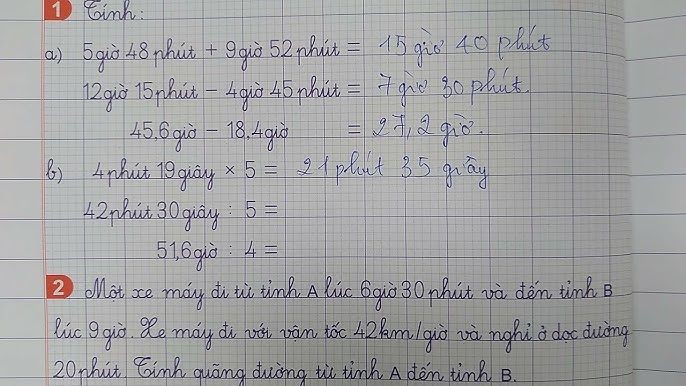 1 Tính:
a) 5 giờ 48 phút + 9 giờ 52 phút = 15 giờ 40 phút
12 giờ 15 phút - 4 giờ 45 phút = 7 giờ 30 phút.
45,6 giờ - 18,4 giờ = 27,2 giờ.
b) 4 phút 19 giây × 5 = 21 phút 35 giây
42 phút 30 giây : 5 =
51,6 giờ : 4 =
2 Một xe máy đi từ tỉnh A lúc 6 giờ 30 phút và đến tỉnh B
lúc 9 giờ. Xe máy đi với vận tốc 42km/giờ và nghỉ ở dọc đường
20 phút. Tính quãng đường từ tỉnh A đến tỉnh B.